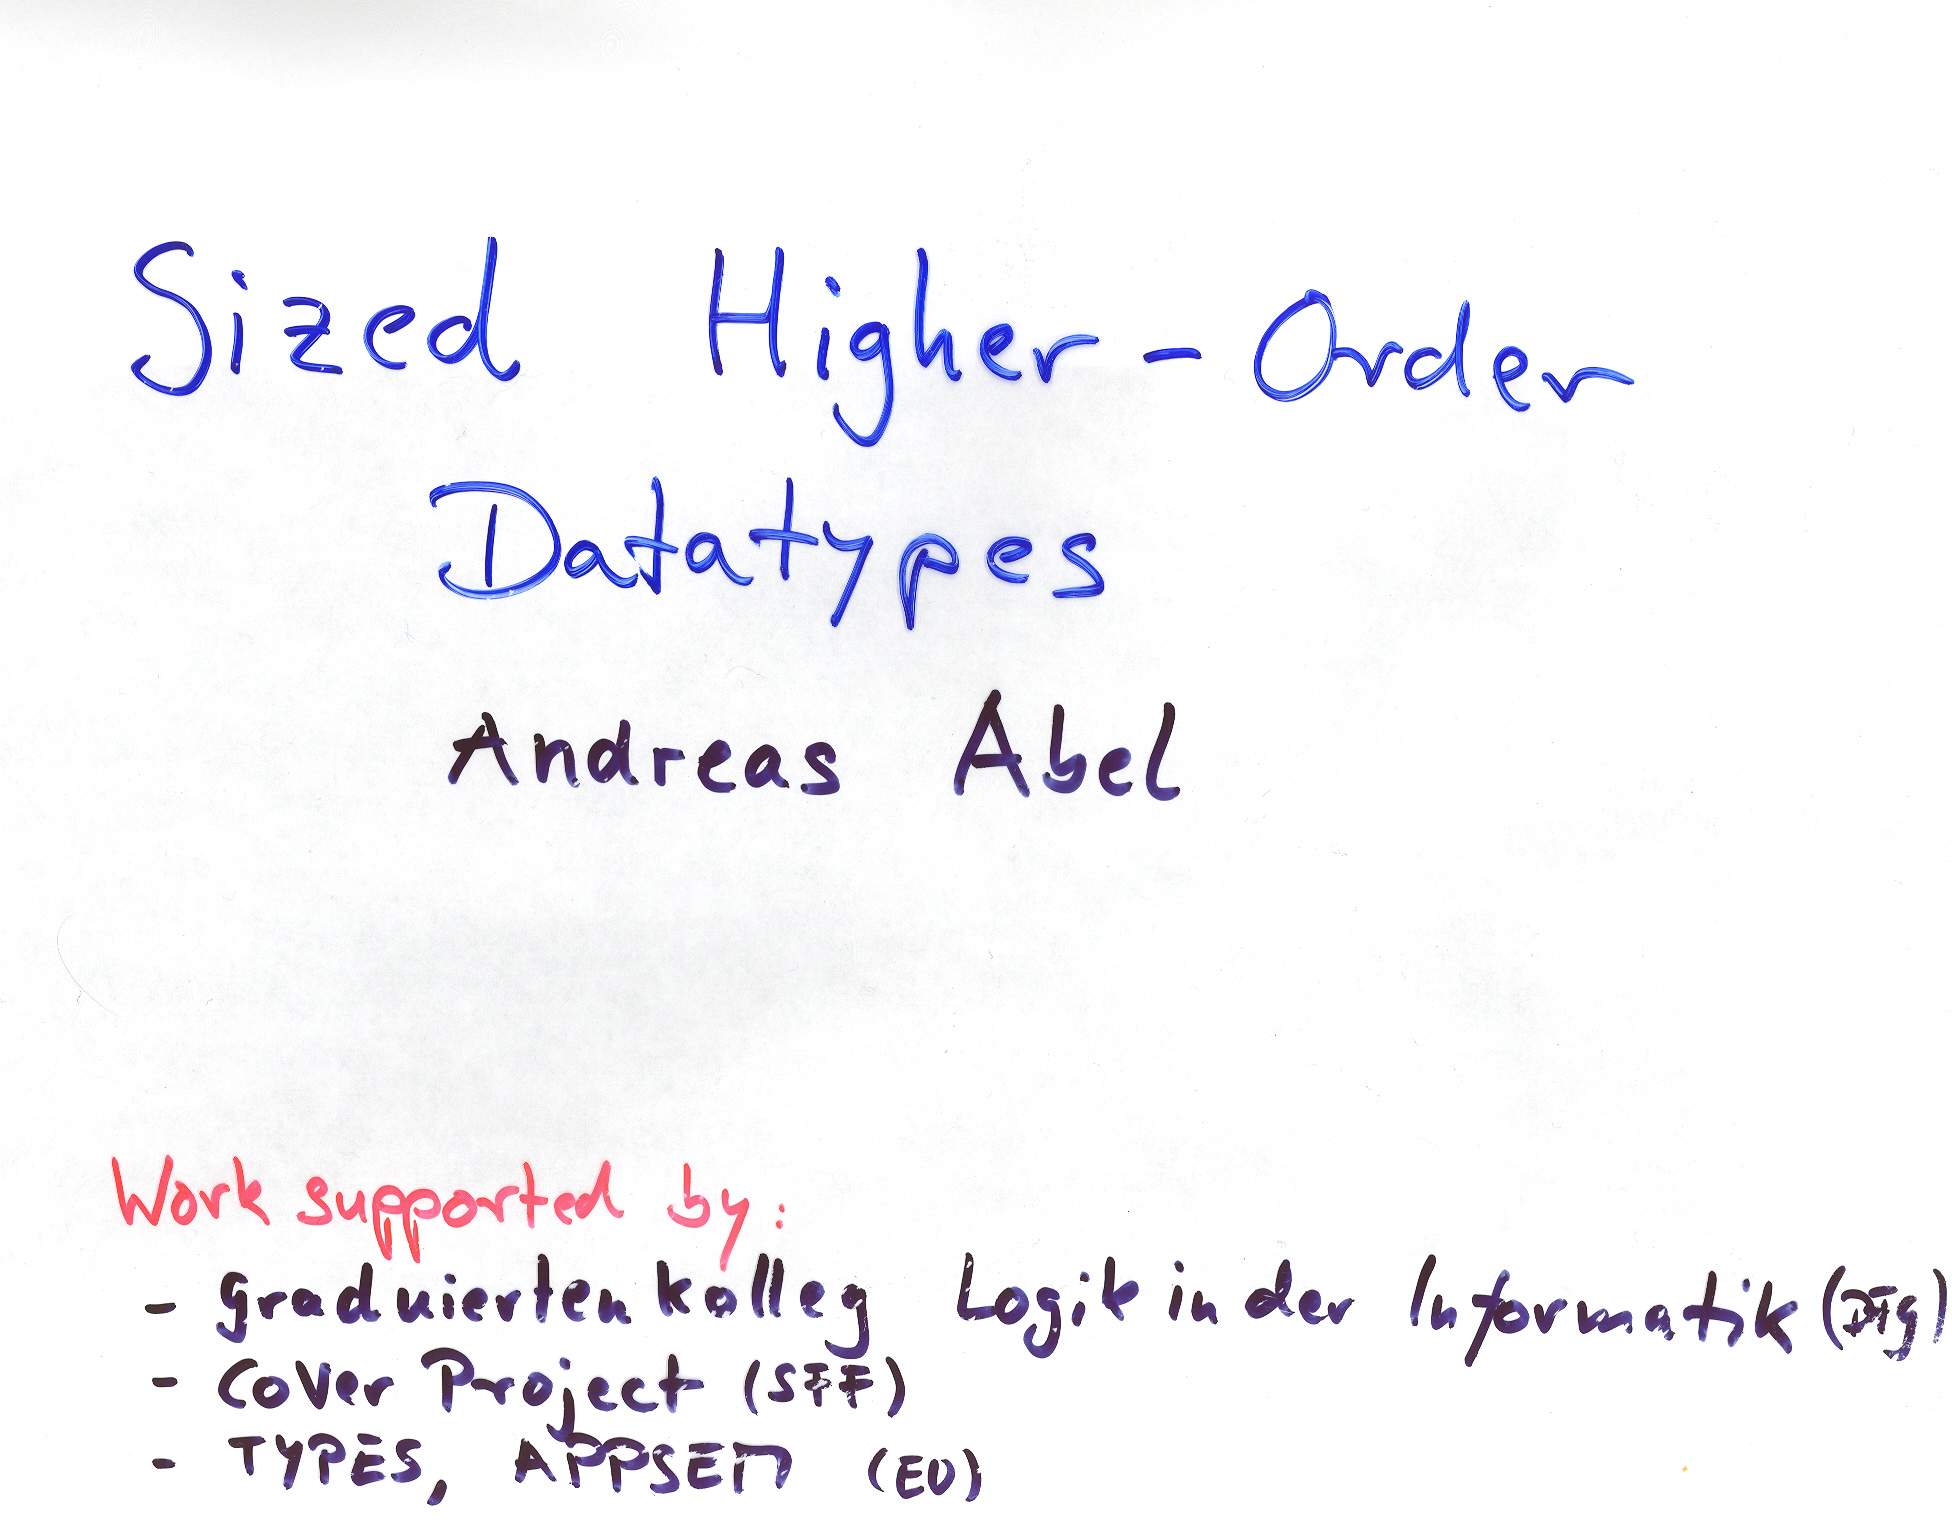 Sized Higher-Order
Datatypes
Andreas Abel
Work supported by:
- Graduiertenkolleg Logik in der Informatik (DFG)
- CoVer Project (SFF)
- TYPES, APPSEM (EU)